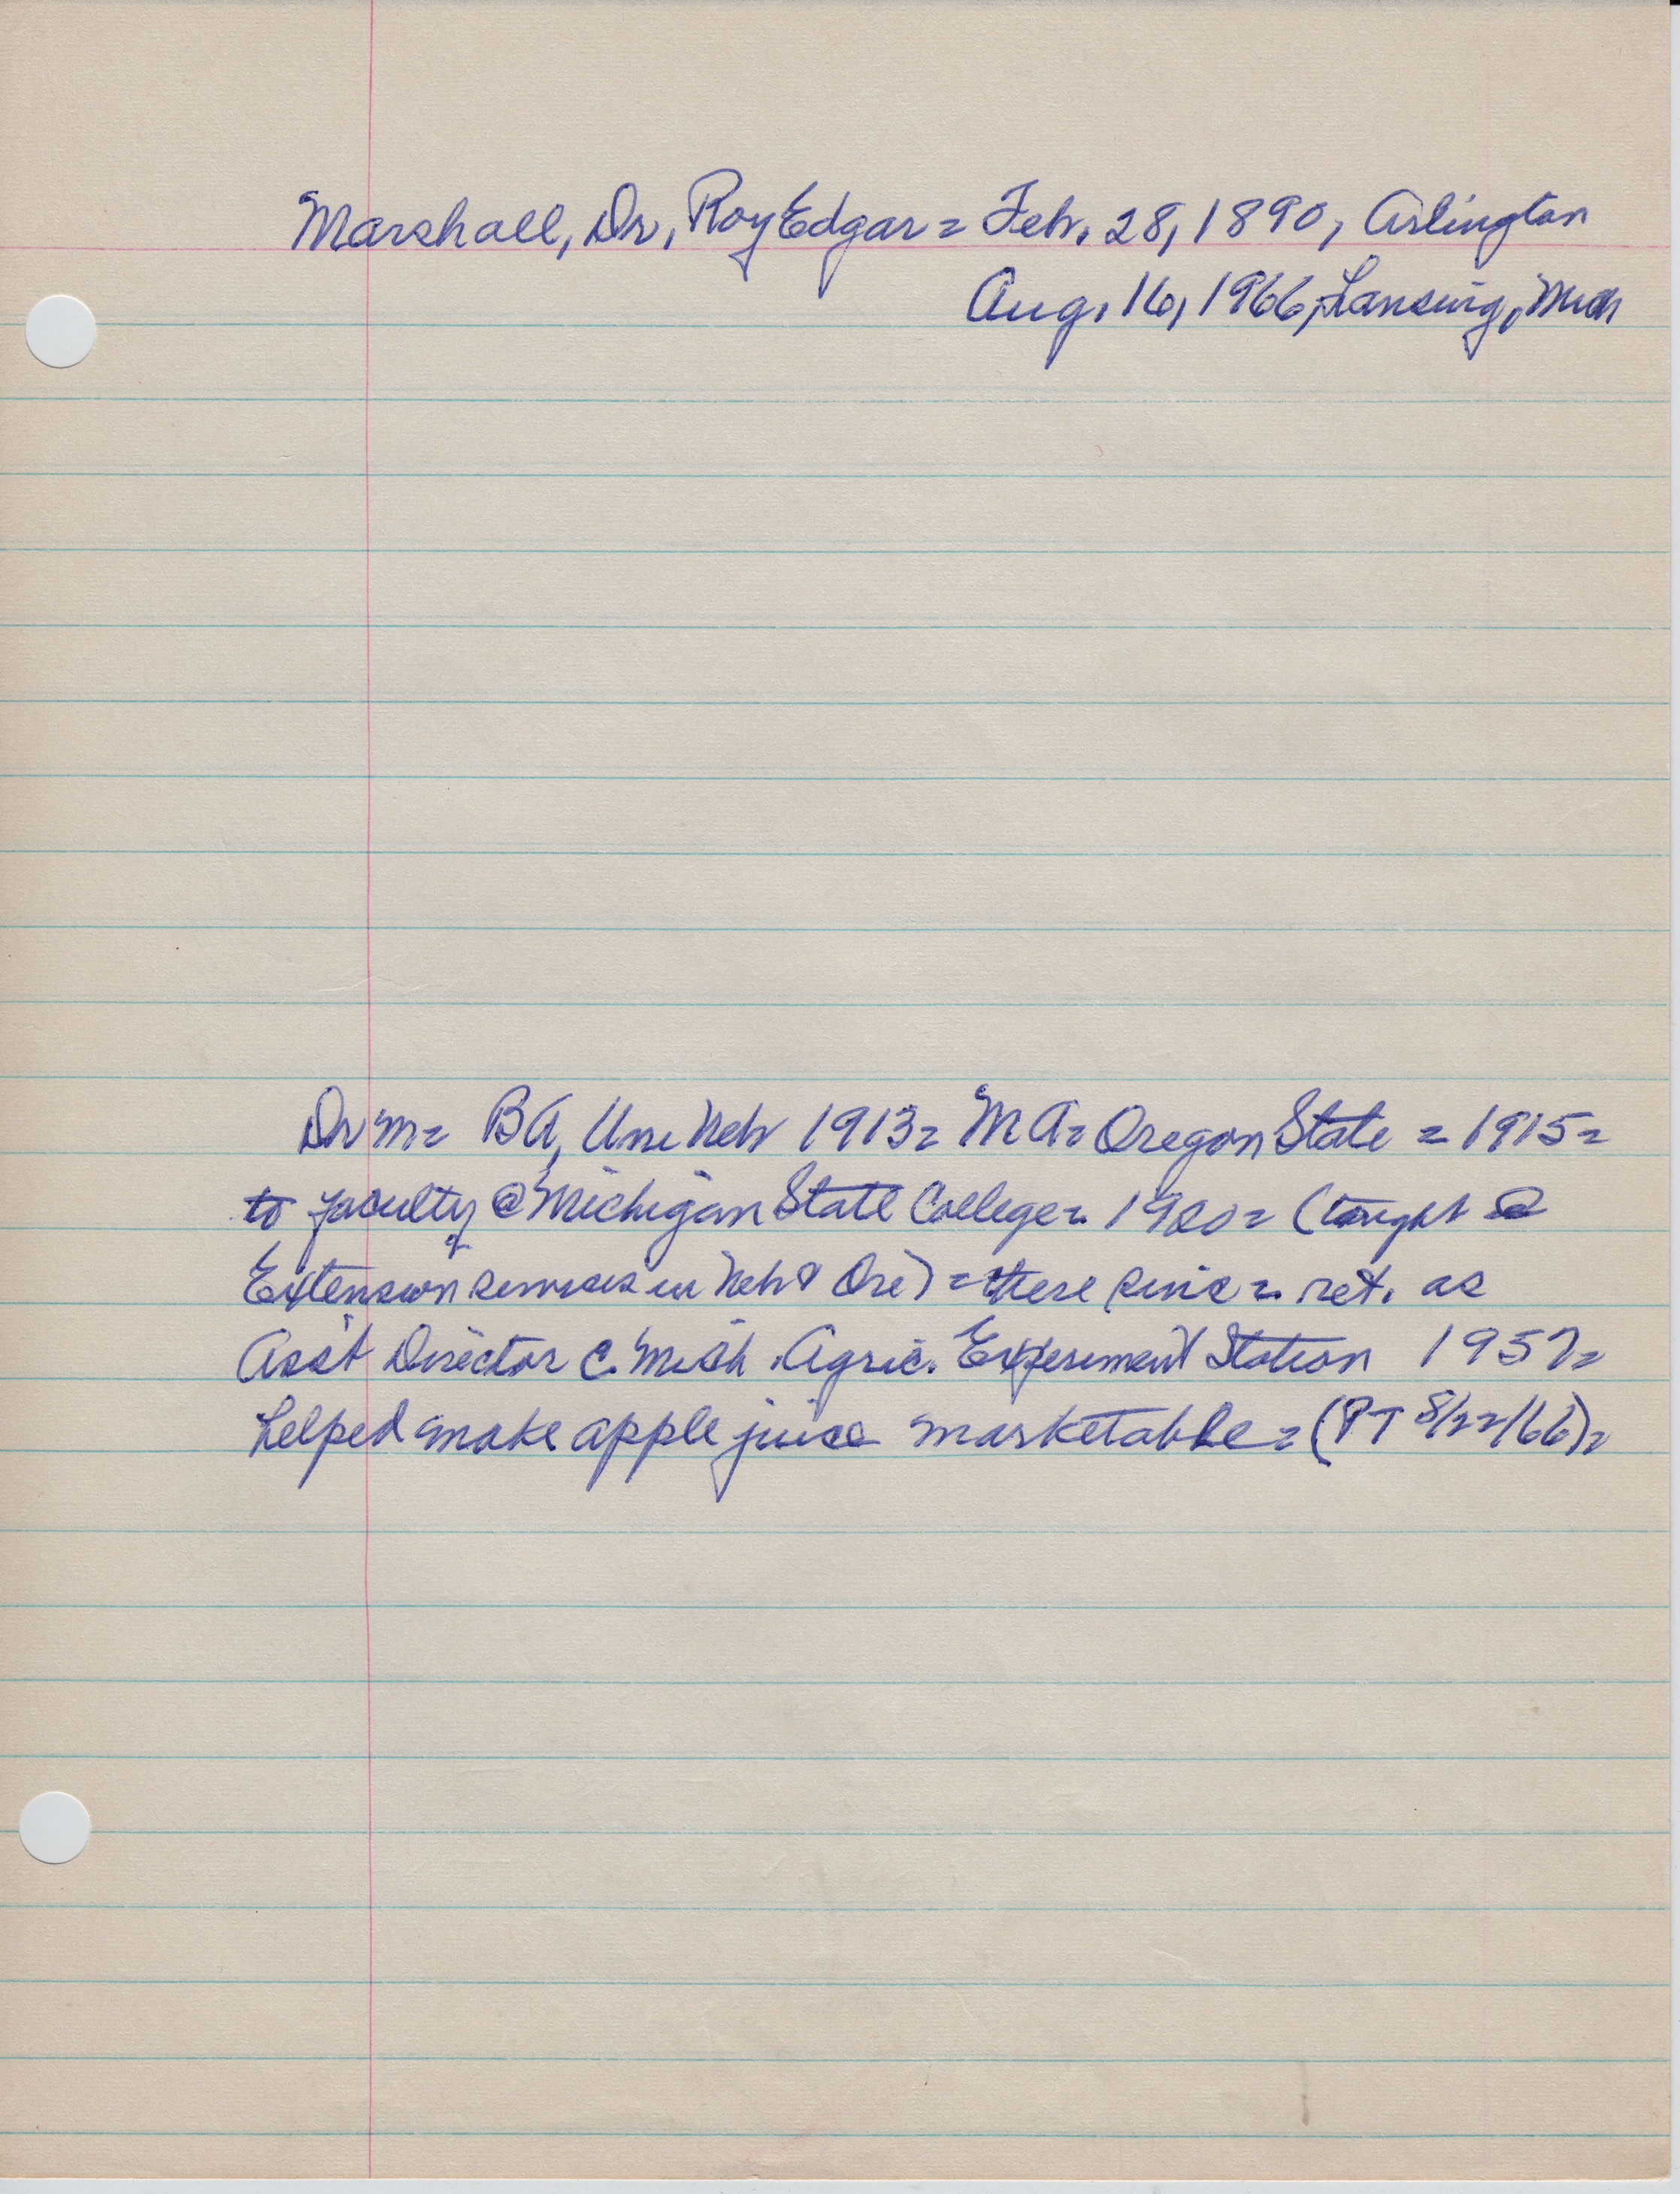 Marshall, Dr, Roy Edgar = Feb. 28, 1890, Arlington
Aug. 16, 1966, Lansing, Mich
Dr M = BA, Uni Neb 1913 = MA = Oregon State = 1915 =
to faculty @ Michigan State College = (taught
Extension services in Neb & Ore) = there since = ret. as
Ass't Director Mich. Agric. Experiment Station 1957 =
helped make apple juice marketable = (PT 8/22/66) =